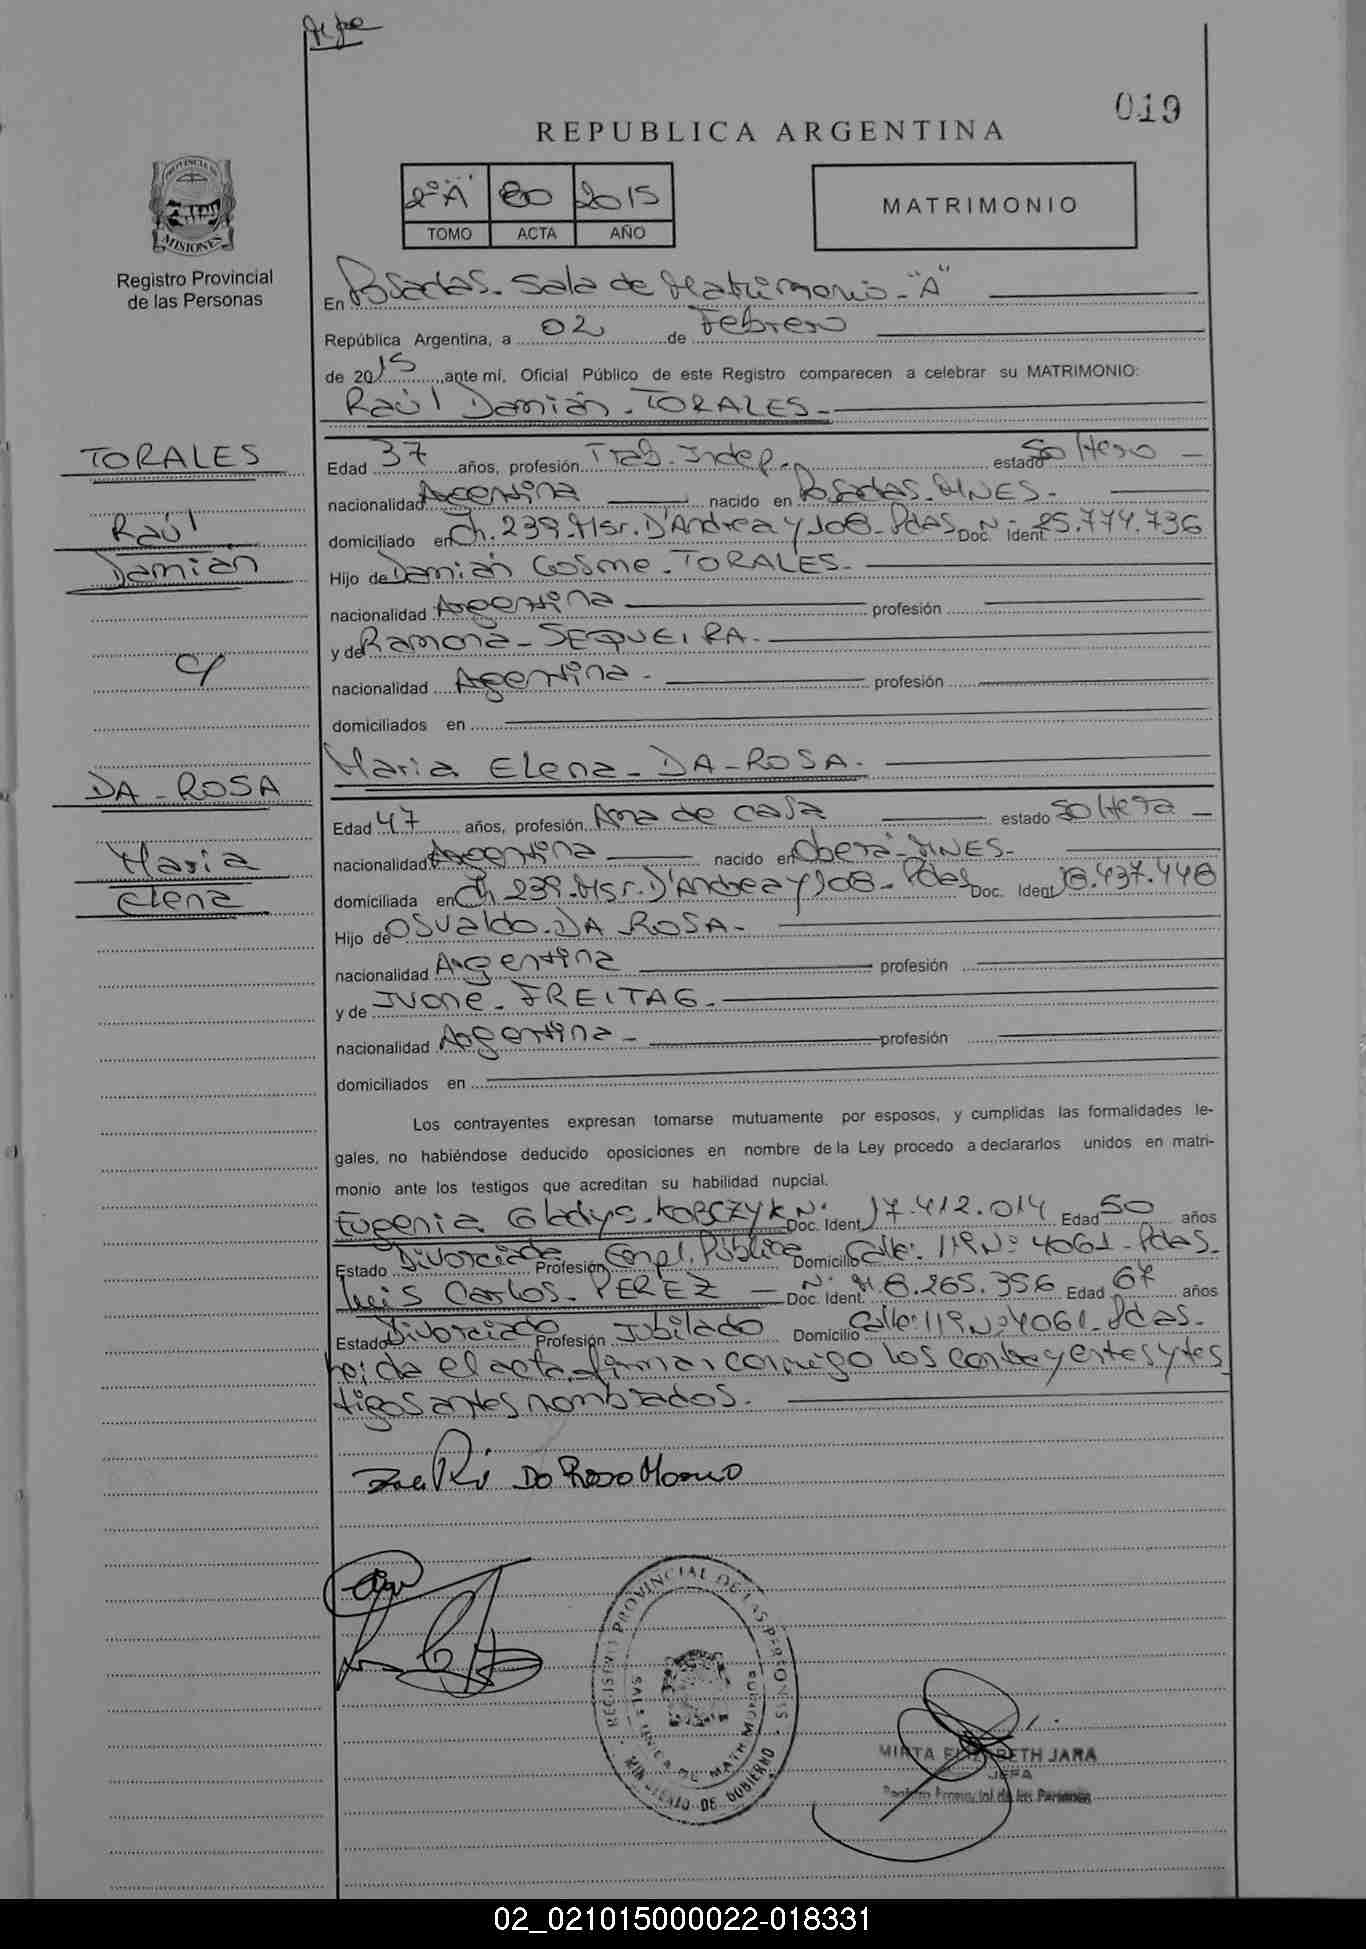 019
REPUBLICA ARGENTINA
2º "A" 80 2015
TOMO ACTA AÑO
MATRIMONIO
PROVINCIA DE MISIONES
Registro Provincial
de las Personas
En Posadas. Sala de Matrimonio - "A"
República Argentina, a 02 de Febrero
de 2015, ante mí, Oficial Público de este Registro comparecen a celebrar su MATRIMONIO:
Raúl Damián - TORALES -
TORALES
Raúl
Damián
c/
DA - ROSA
Maria
Elena
Edad 37 años, profesión Trab. Indep. estado Soltero -
nacionalidad Argentina nacido en Posadas. MNES -
domiciliado en Ch. 239. Msr. D'Andrea y 108 - Pdas Doc. Ident. Nº 25.774.736
Hijo de Damián Cosme - TORALES.
nacionalidad Argentina profesión
y de Ramona - SEQUEIRA.
nacionalidad Argentina - profesión
domiciliados en
Maria Elena - DA - ROSA.
Edad 47 años, profesión Ama de casa estado Soltera -
nacionalidad Argentina nacido en Oberá - MNES -
domiciliada en Ch. 239 - Msr. D'Andrea y 108 - Pdas Doc. Ident. 18.437.448
Hijo de Osvaldo - DA ROSA -
nacionalidad Argentina profesión
y de Ivone - FREITAG.
nacionalidad Argentina - profesión
domiciliados en
Los contrayentes expresan tomarse mutuamente por esposos, y cumplidas las formalidades le-
gales, no habiéndose deducido oposiciones en nombre de la Ley procedo a declararlos unidos en matri-
monio ante los testigos que acreditan su habilidad nupcial.
Eugenia Gladys - KOBCZYK Doc. Ident. Nº 17.412.014 Edad 50 años
Estado Divorciada Profesión Empl. Pública Domicilio Calle: 119 Nº 4061 - Pdas.
Luis Carlos - PEREZ - Doc. Ident. Nº M 8.265.356 Edad 67 años
Estado Divorciado Profesión Jubilado Domicilio Calle: 119 Nº 4061 - Pdas.
leida el acta, firman conmigo los contrayentes y tes
tigos antes nombrados.
REGISTRO PROVINCIAL DE LAS PERSONAS
MINISTERIO DE GOBIERNO
MIRTA ELIZABETH JARA
JEFA
Registro Provincial de las Personas
02_021015000022-018331